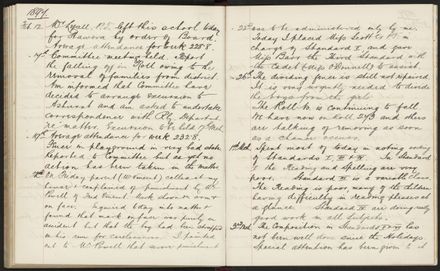 1897.
Feb. 12. Mr Lyall, P.T. left this school today
for Hawera by order of Board
Average attendance for week 228.8.
Committee meeting held. Report
the falling off in Roll owing to the
removal of families from district
Am informed that Committee have
decided to arrange Excursion to
Ashurst and am asked to undertake
correspondence with Rly. Department
re matter. Excursion to be held 17th March
19th Average attendance for week 232.8.
Fence in playground in very bad state
Reported to Committee but as yet no
action has been taken in the matter
On Friday parent called at my
house & complained of punishment by Mr
Powell of Mark shown on
on face. Inquired today into matter &
found that mark on face was purely an
accident but that the boy had been strapped
on his arm for carelessness. I pointed
out to Mr Powell that such punishment
to be administered only by me.
Today I placed Miss Scott in
charge of Standard I, and gave
Miss the Third Standard with
the Cadet (Miss O'Donnell) to assist.
26th The dividing fence is still not repaired.
It is very urgently needed to divide
the boys from the girls.
The Roll No. is continuing to fall
We have now on Roll 293 and others
are talking of removing as soon
as a chance occurs.
1st Mch. Spent most of today in noting working
of Standards I, II & IV. In Standard
the Reading and Spelling are very
poor. Standard II is a smooth Class.
The Reading is poor, many of the children
having difficulty in reading phrases at
a glance. Standard IV are doing very
good work in all subjects.
3rd Mch. The Composition in Standard has
not been well done since the Holidays.
Special attention has been given to it